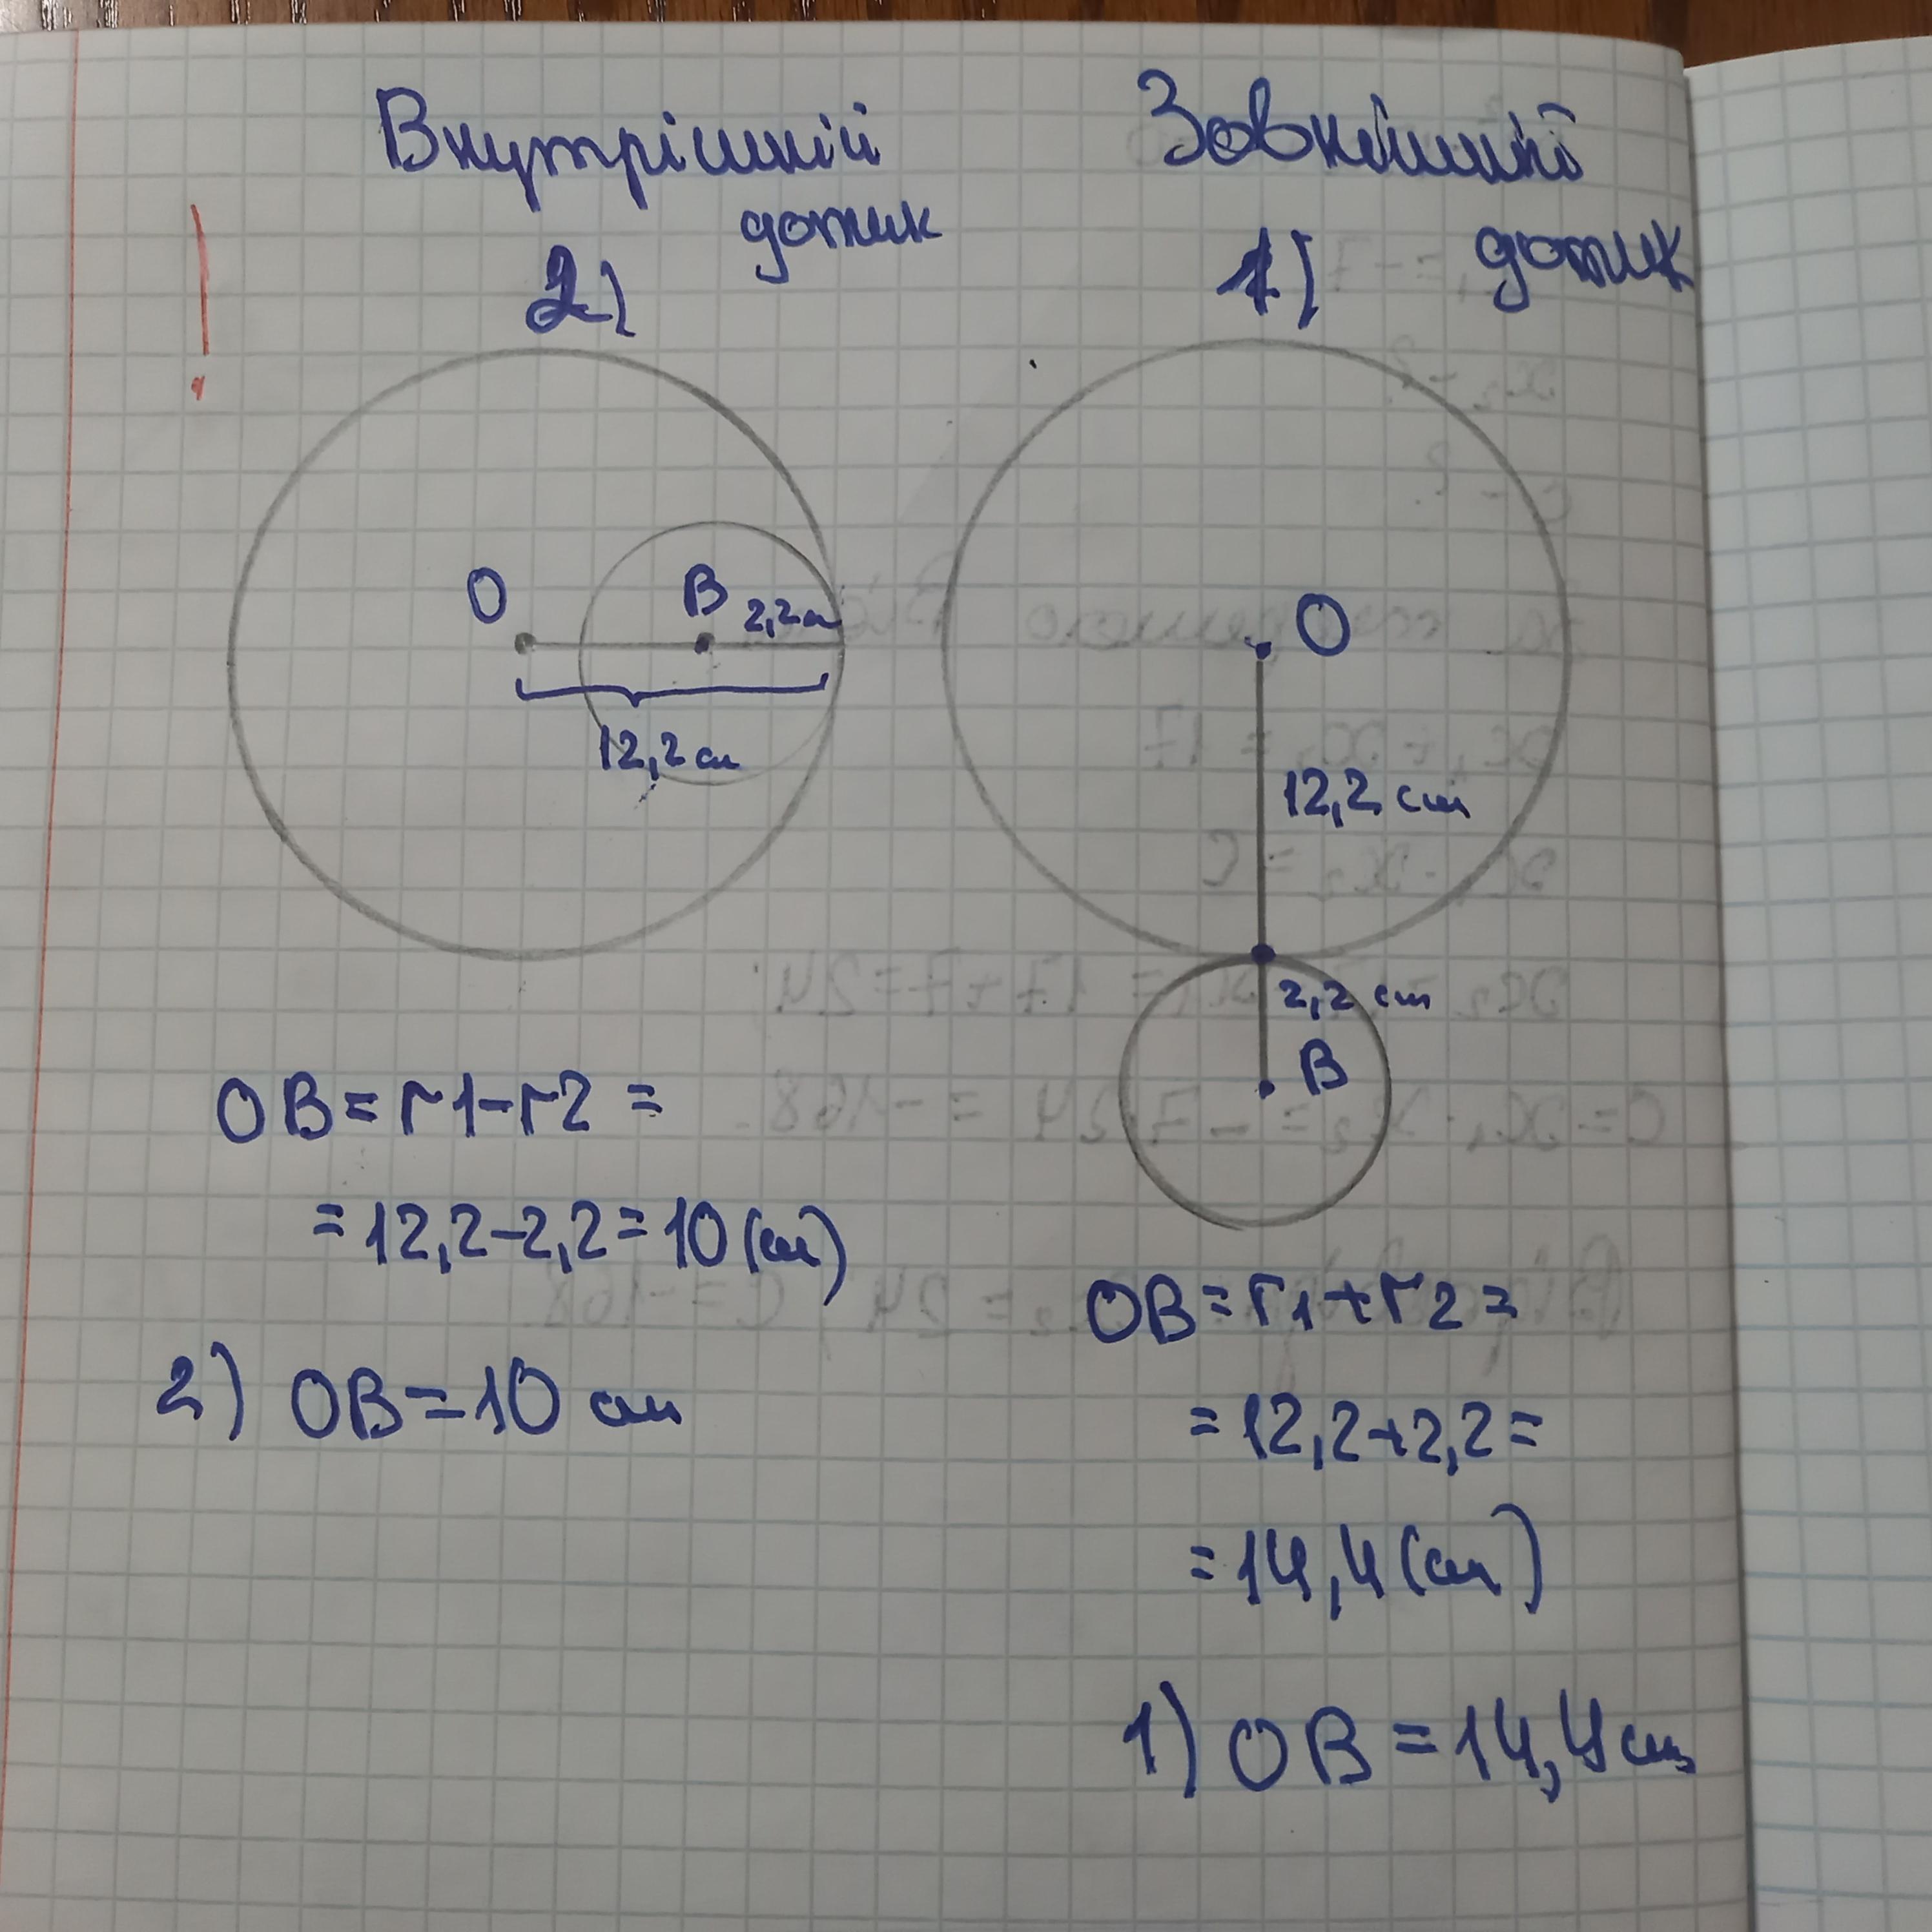 Внутрішній
дотик
2)
O
B
2,2см
12,2см
OB = r1-r2 =
= 12,2-2,2 = 10 (см)
2) OB = 10 см
Зовнішній
дотик
1)
O
12,2 см
2,2 см
B
OB = r1+r2 =
= 12,2+2,2 =
= 14,4 (см)
1) OB = 14,4 см